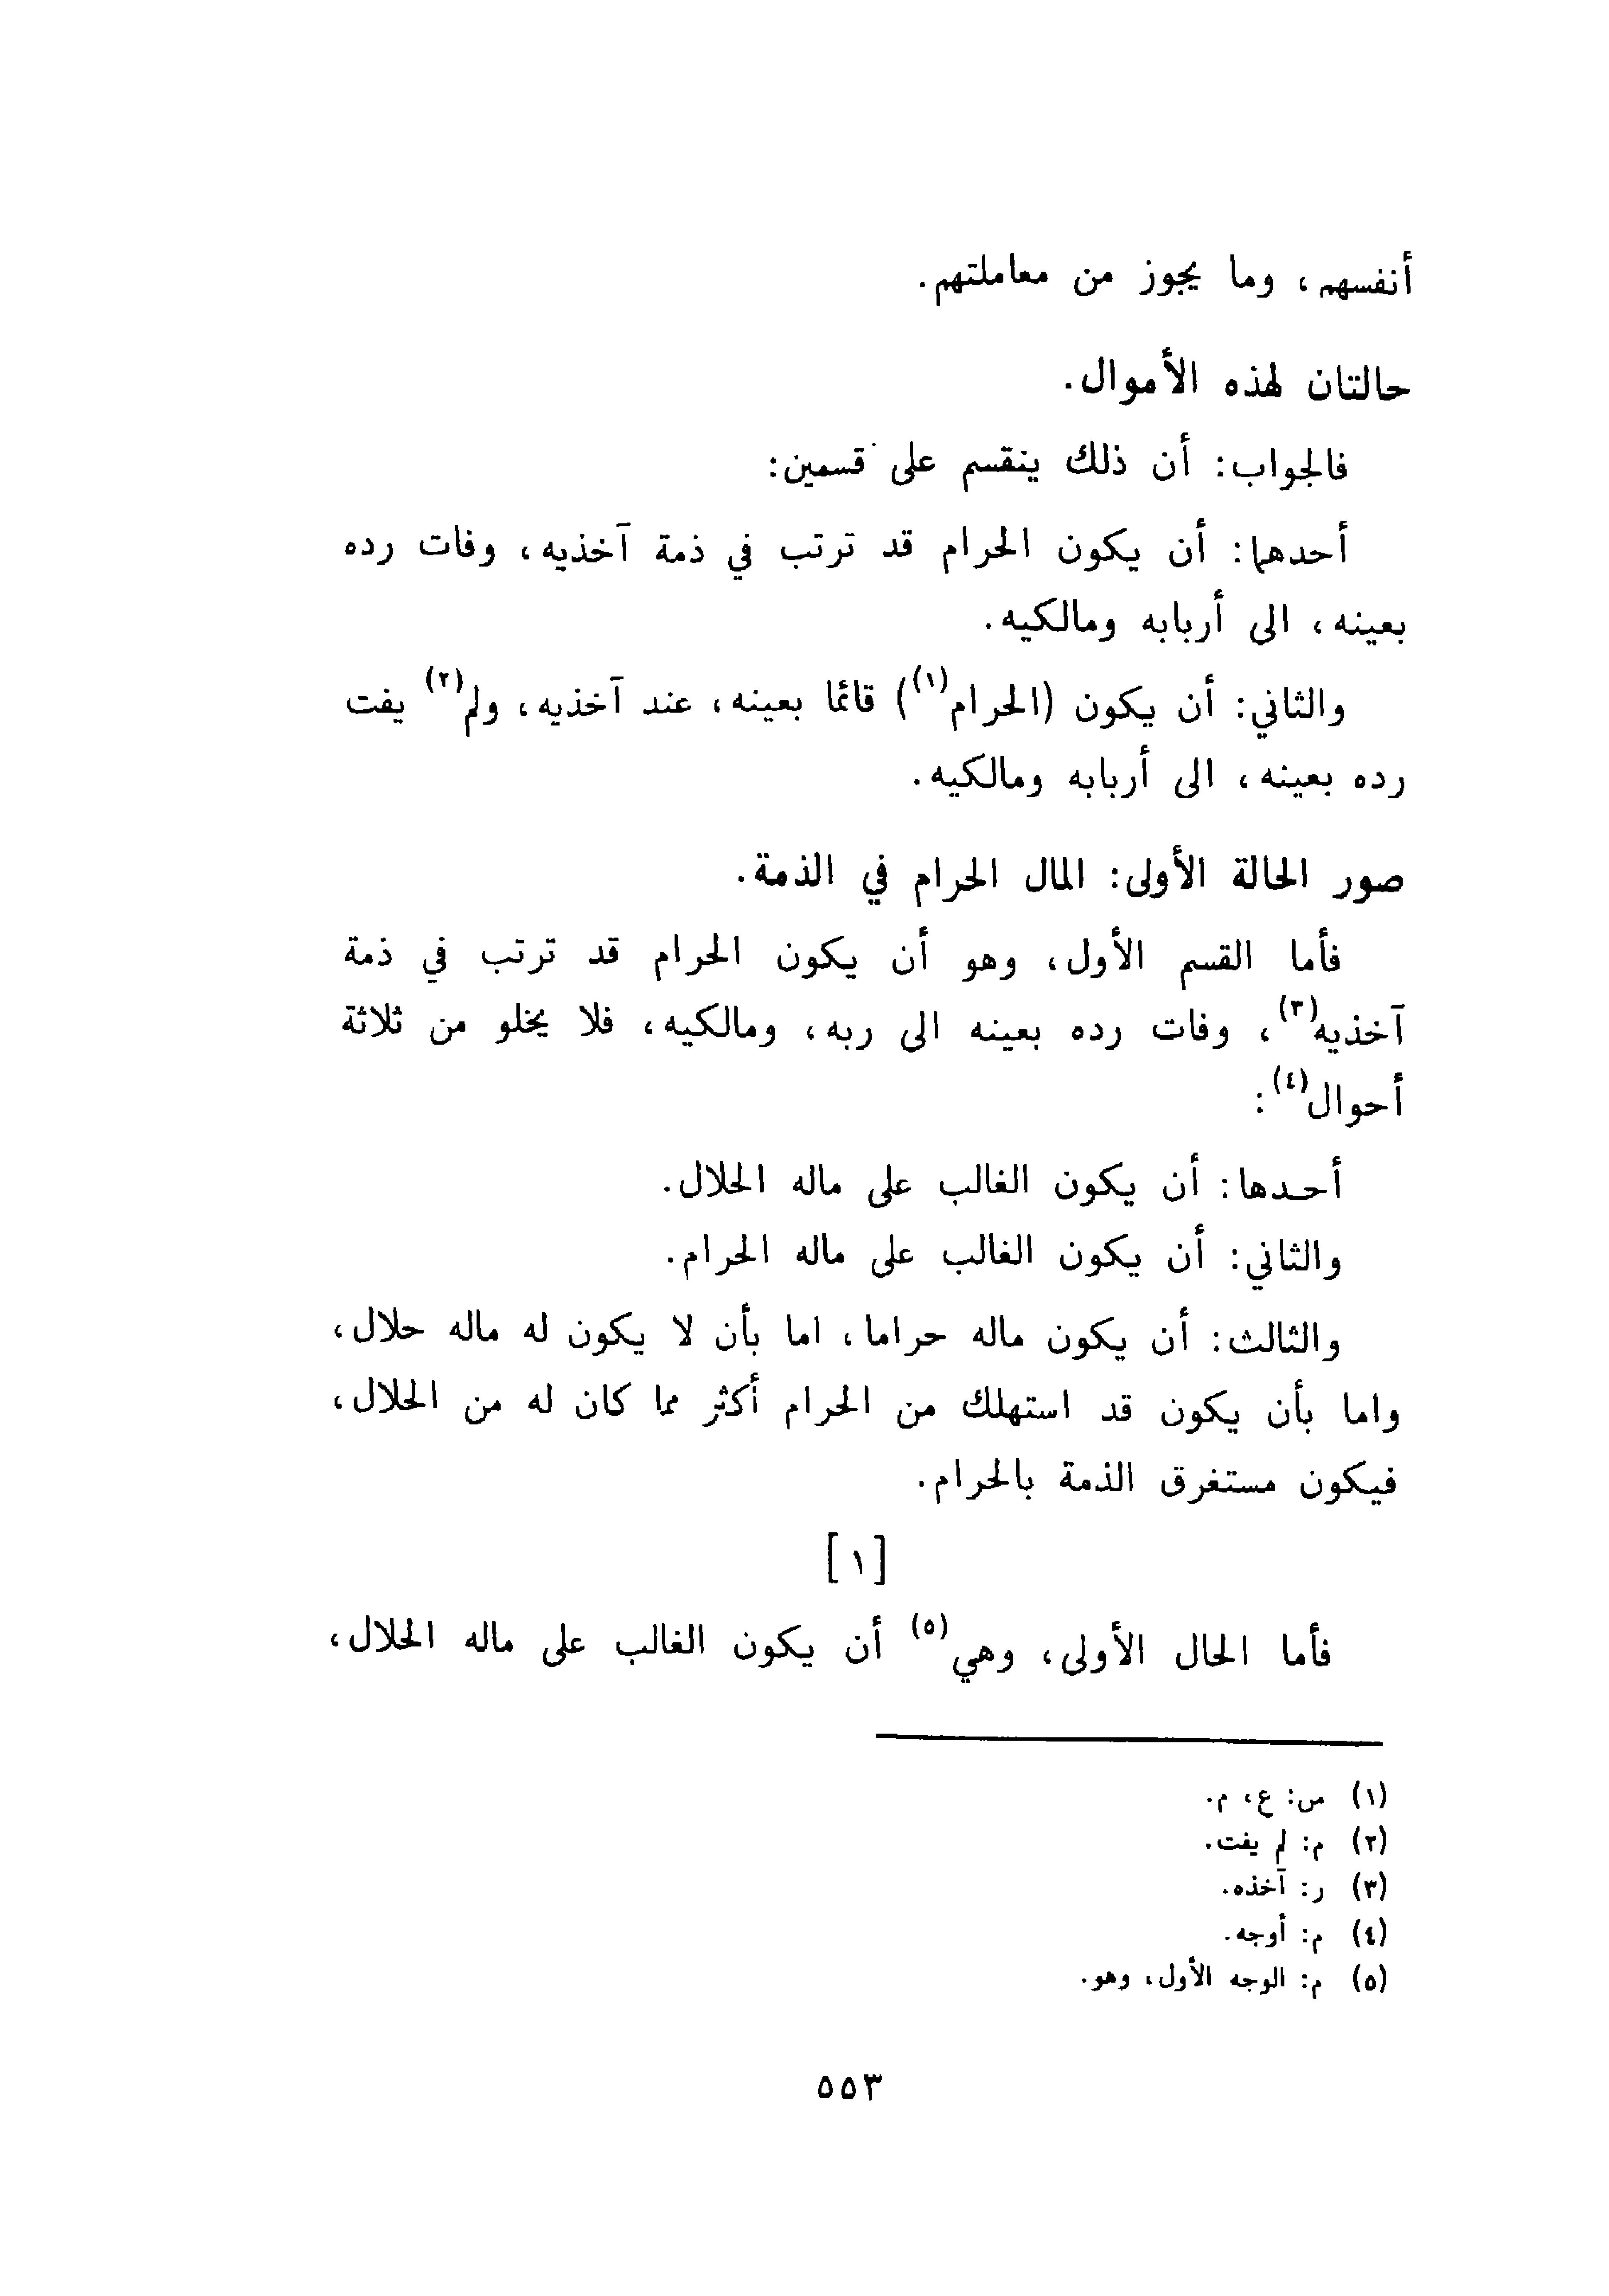 أنفسهم، وما يجوز من معاملتهم.
حالتان لهذه الأموال.
فالجواب: أن ذلك ينقسم على قسمين:
أحدهما: أن يكون الحرام قد ترتب في ذمة آخذيه، وفات رده
بعينه، الى أربابه ومالكيه.
والثاني: أن يكون (الحرام(١)) قائما بعينه، عند آخذيه، ولم(٢) يفت
رده بعينه، الى أربابه ومالكيه.
صور الحالة الأولى: المال الحرام في الذمة.
فأما القسم الأول، وهو أن يكون الحرام قد ترتب في ذمة
آخذيه(٣)، وفات رده بعينه الى ربه، ومالكيه، فلا يخلو من ثلاثة
أحوال(٤):
أحدها: أن يكون الغالب على ماله الحلال.
والثاني: أن يكون الغالب على ماله الحرام.
والثالث: أن يكون ماله حراما، اما بأن لا يكون له ماله حلال،
واما بأن يكون قد استهلك من الحرام أكثر مما كان له من الحلال،
فيكون مستغرق الذمة بالحرام.
[١]
فأما الحال الأولى، وهي(٥) أن يكون الغالب على ماله الحلال،
(١) س: ع، م.
(٢) م: لم يفت.
(٣) ر: آخذه.
(٤) م: أوجه.
(٥) م: الوجه الأول، وهو.
٥٥٣